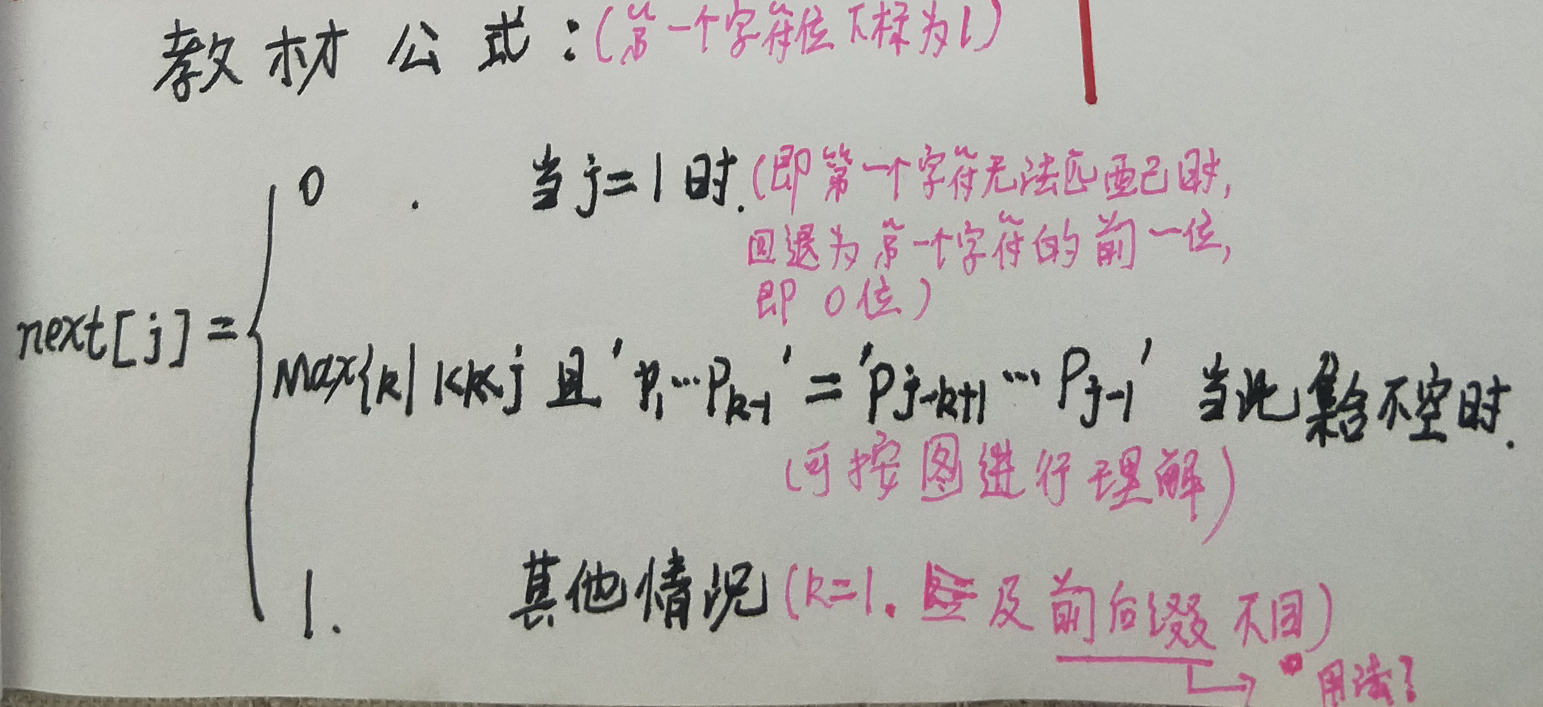 教材公式:(第一个字符位下标为1)
0 . 当j=1时.(即第一个字符无法匹配时,
回退为第一个字符的前一位,
即0位)
next[j]=
Max{k|1<k<j 且'P1…Pk-1'='Pj-k+1…Pj-1' 当此集合不空时.
(可按图进行理解)
1. 其他情况(k=1. 及前后缀不同)
用法?